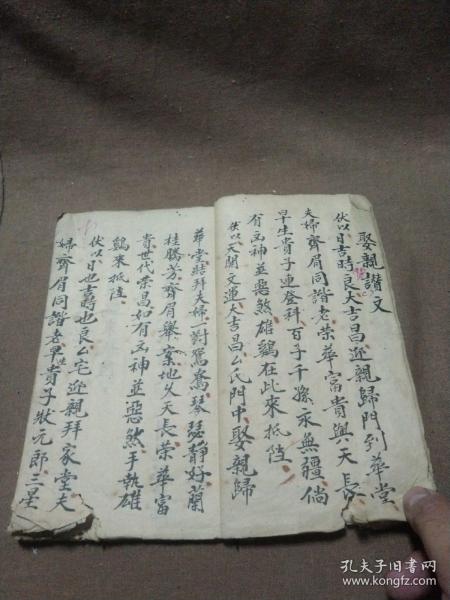 娶親讃文
伏以日吉時良大吉昌迎親歸門到華堂
夫婦齊眉同諧老榮華富貴與天長
早生貴子連登科百子千孫永無疆倘
有凶神並惡煞雄鷄在此來抵
伏以天開文運大吉昌厶氏門中娶親歸
華堂結拜夫婦一對鴛鴦琴瑟靜好蘭
桂騰芳齊眉舉案地久天長榮華富
貴世代榮昌如有凶神並惡煞手執雄
鷄來抵
伏以日也吉時也良厶宅迎親拜家堂夫
婦齊眉同諧老早生貴子狀元郎三星
孔夫子旧书网
www.kongfz.com